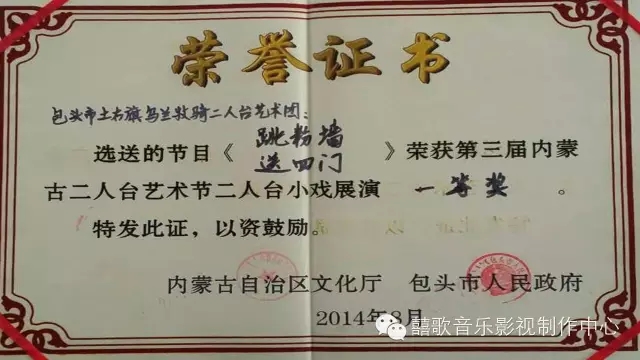 荣誉证书
包头市土右旗乌兰牧骑二人台艺术团：
选送的节目《跳粉墙 送四门》荣获第三届内蒙
古二人台艺术节二人台小戏展演 一等奖 。
特发此证，以资鼓励。
内蒙古自治区文化厅 包头市人民政府
2014年8月
囍歌音乐影视制作中心